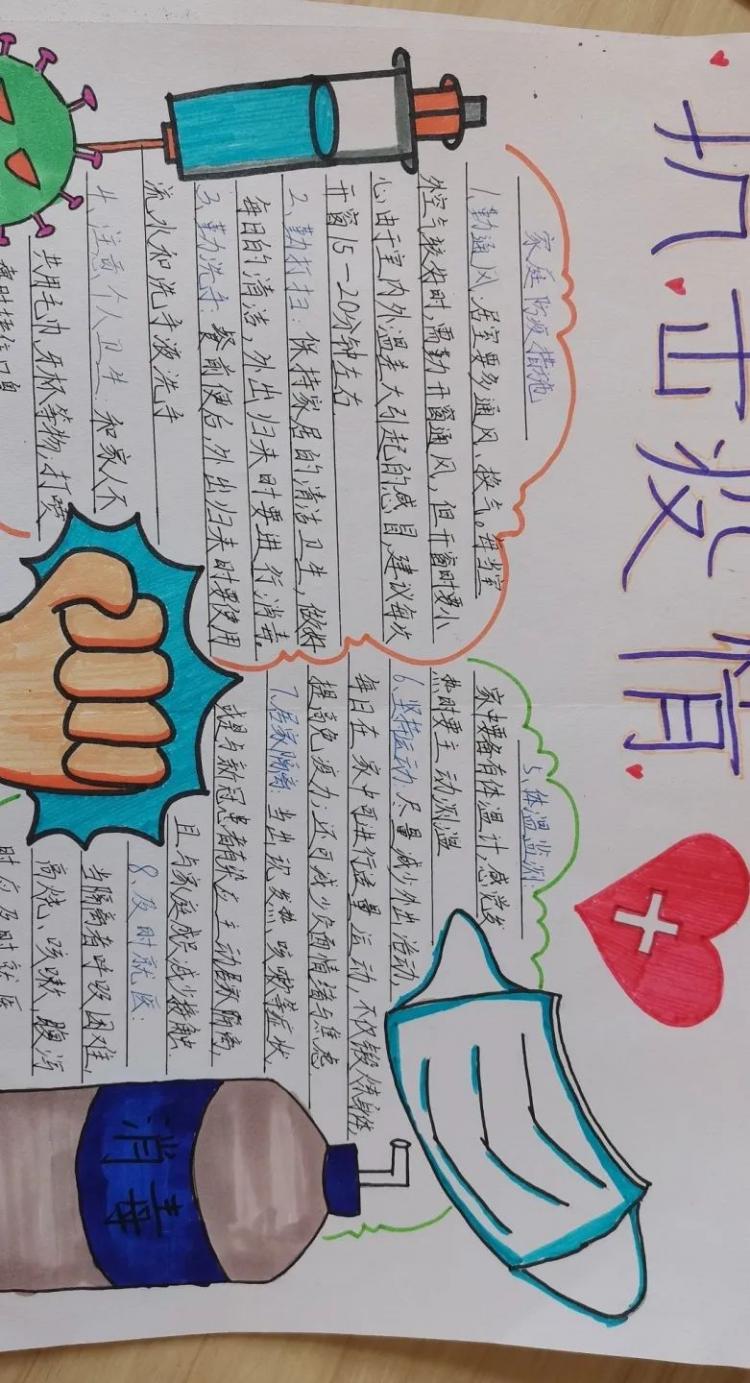 抗击疫情
家庭防疫措施
1.勤通风:居室要多通风、换气。每当室
外空气较好时,需勤开窗通风,但开窗时要小
心由于室内外温差大引起的感冒,建议每次
开窗15-20分钟左右
2.勤打扫:保持家居的清洁卫生,做好
每日的清洁,外出归来时要进行消毒。
3.勤洗手:餐前便后,外出归来时要使用
流水和洗手液洗手
4.注意个人卫生:和家人不
共用毛巾,牙杯等物,打喷
嚏时捂住口鼻
5、体温监测:
家中要备有体温计,感觉发
热时要主动测温
6、坚持运动:尽量减少外出活动,
每日在家中可进行适量运动,不仅锻炼身体,
提高免疫力;还可减少负面情绪与焦虑
7、居家隔离:当出现发热、咳嗽等症状
或是与新冠患者有接主动居家隔离,
且与家庭成员减少接触
8、及时就医:
当隔离者呼吸困难,
高烧、咳嗽、腹泻
时应及时就医
消毒